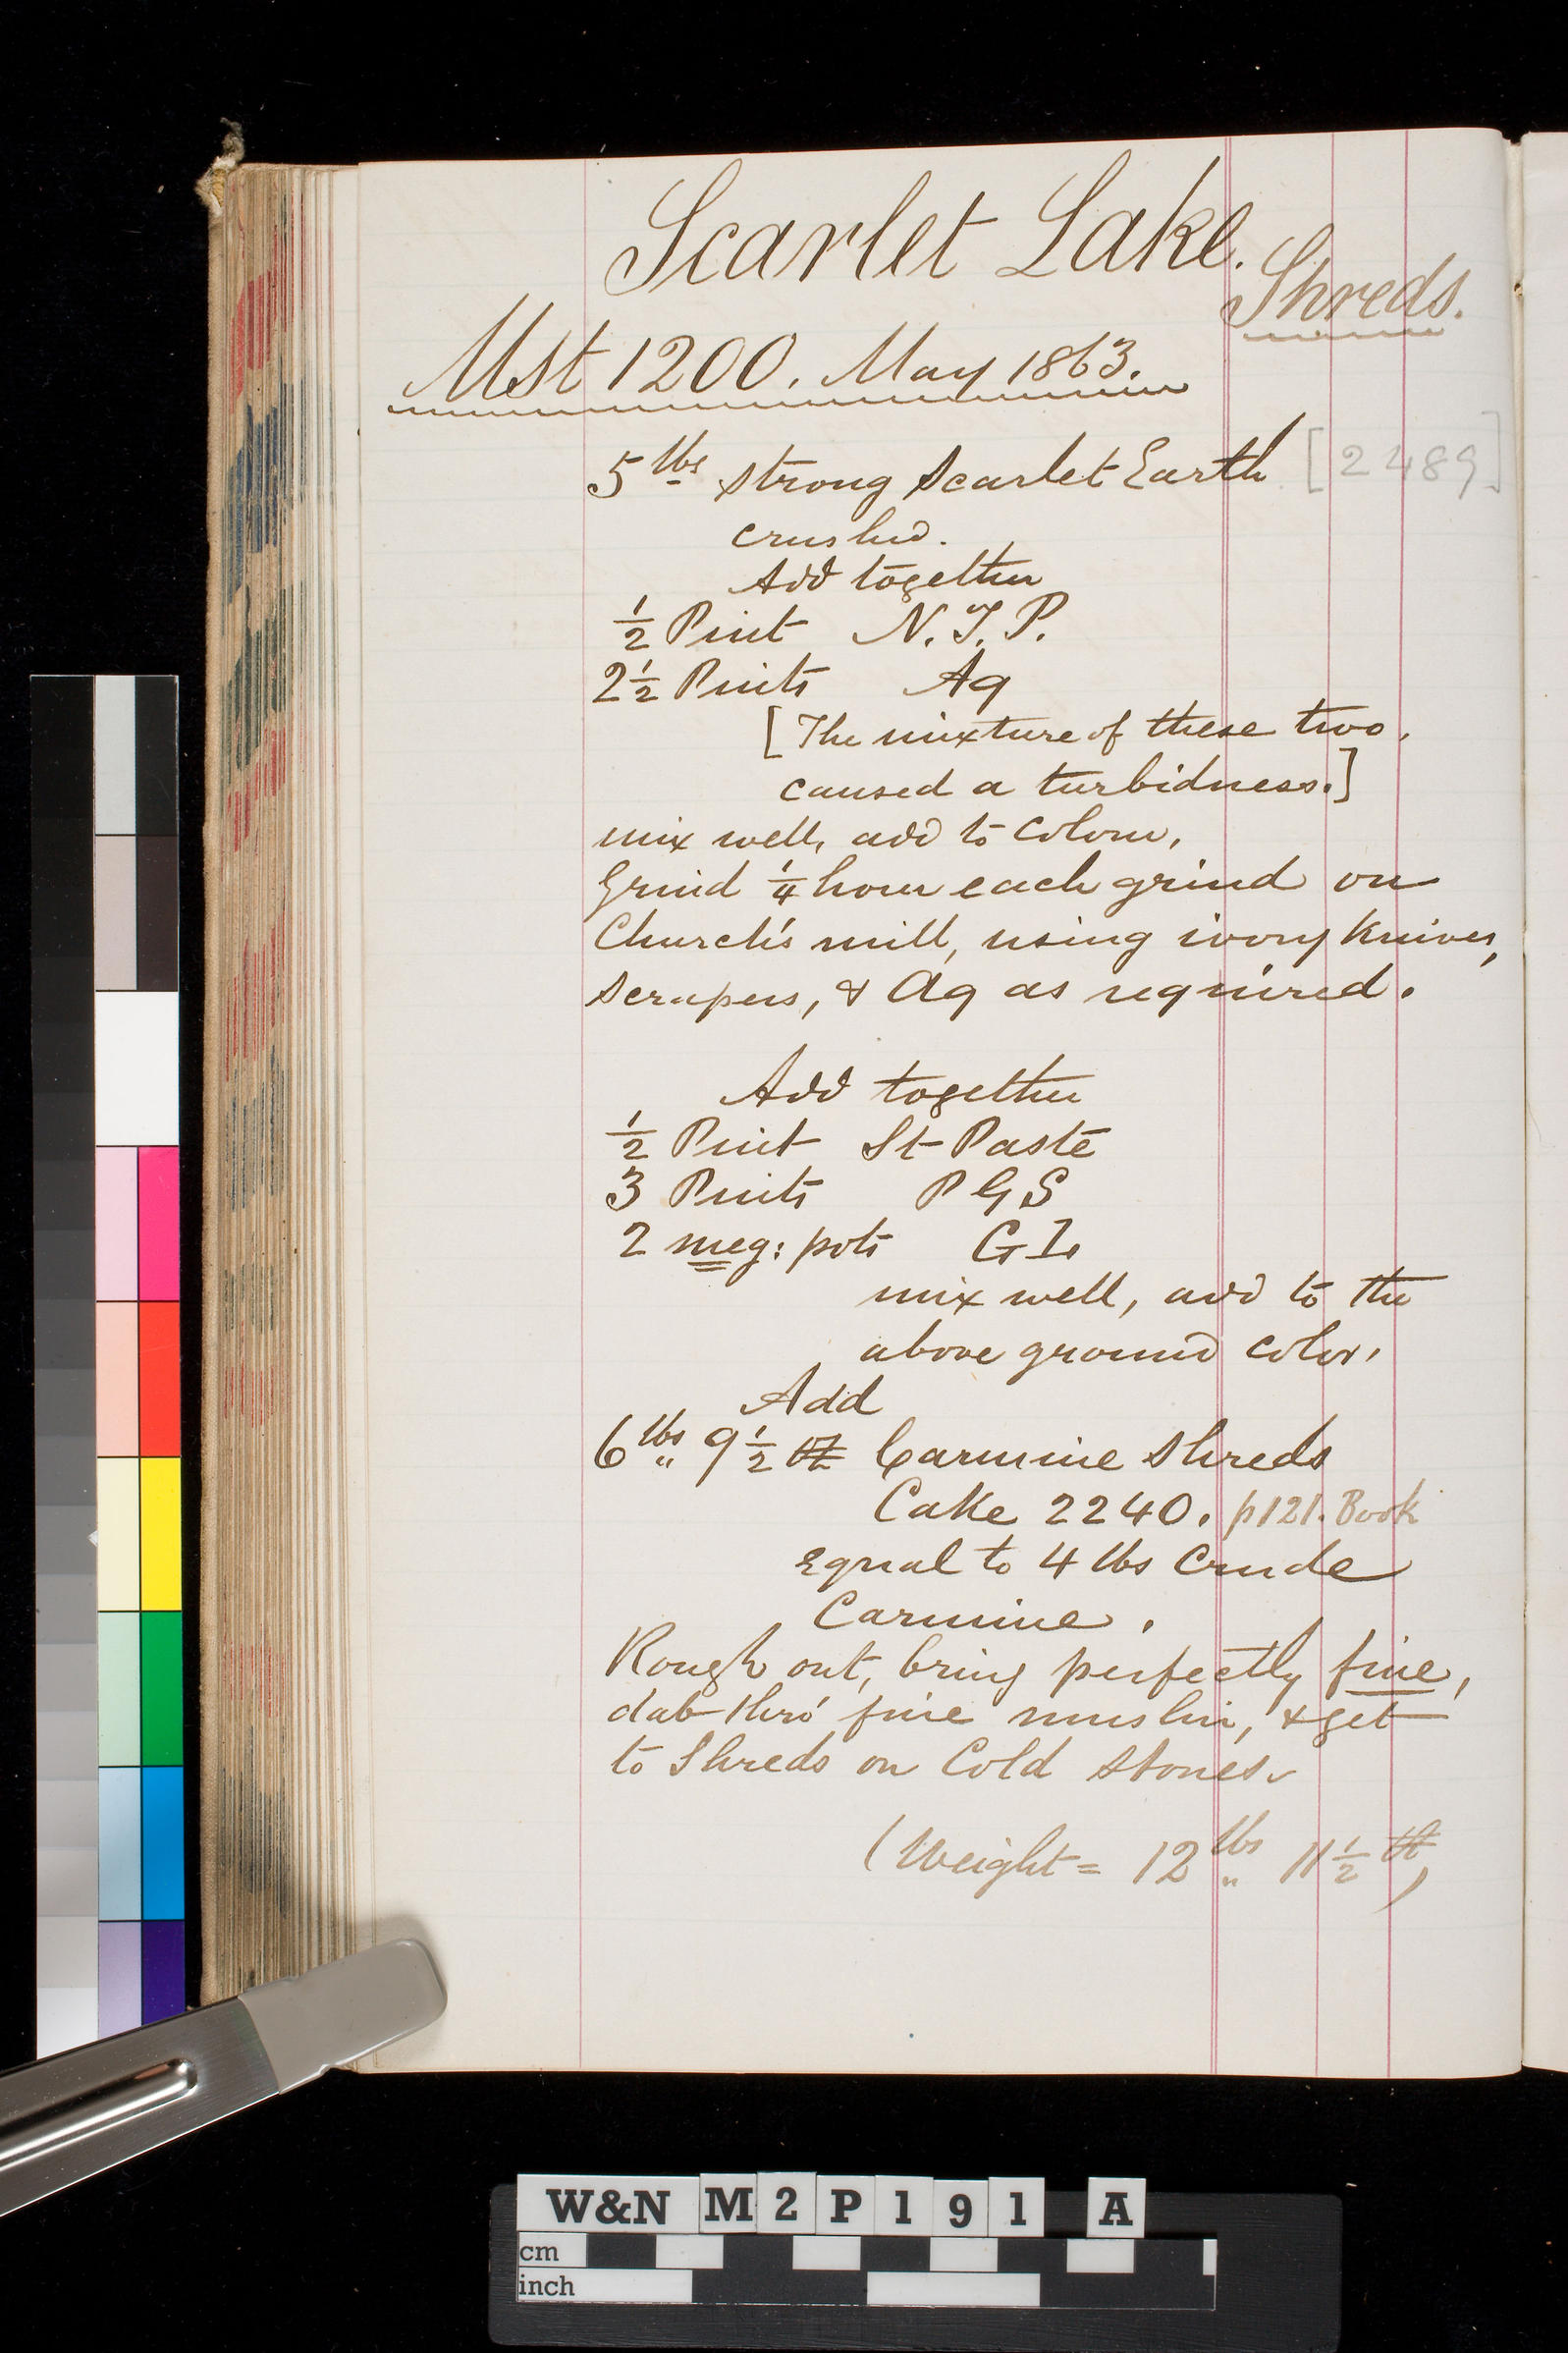 Scarlet Lake.
Shreds.
Mst 1200. May 1863.
5 lbs strong Scarlet Earth [2489]
crushed.
Add together
½ Pint N. J. P.
2½ Pints Aq
[The mixture of these two,
caused a turbidness.]
mix well, add to colour,
Grind ¼ hour each grind on
Church's mill, using ivory knives,
scrapers, & Aq as required.
Add together
½ Pint St Paste
3 Pints P G S
2 meg: pots G L
mix well, add to the
above ground color,
Add
6 lbs 9½ Carmine Shreds
Cake 2240. p121. Book
Equal to 4 lbs Crude
Carmine.
Rough out, bring perfectly fine,
dab thro' fine muslin, & get
to Shreds on Cold Stones.
(Weight = 12 lbs 11½ )
W&N M2P191 A
cm
inch